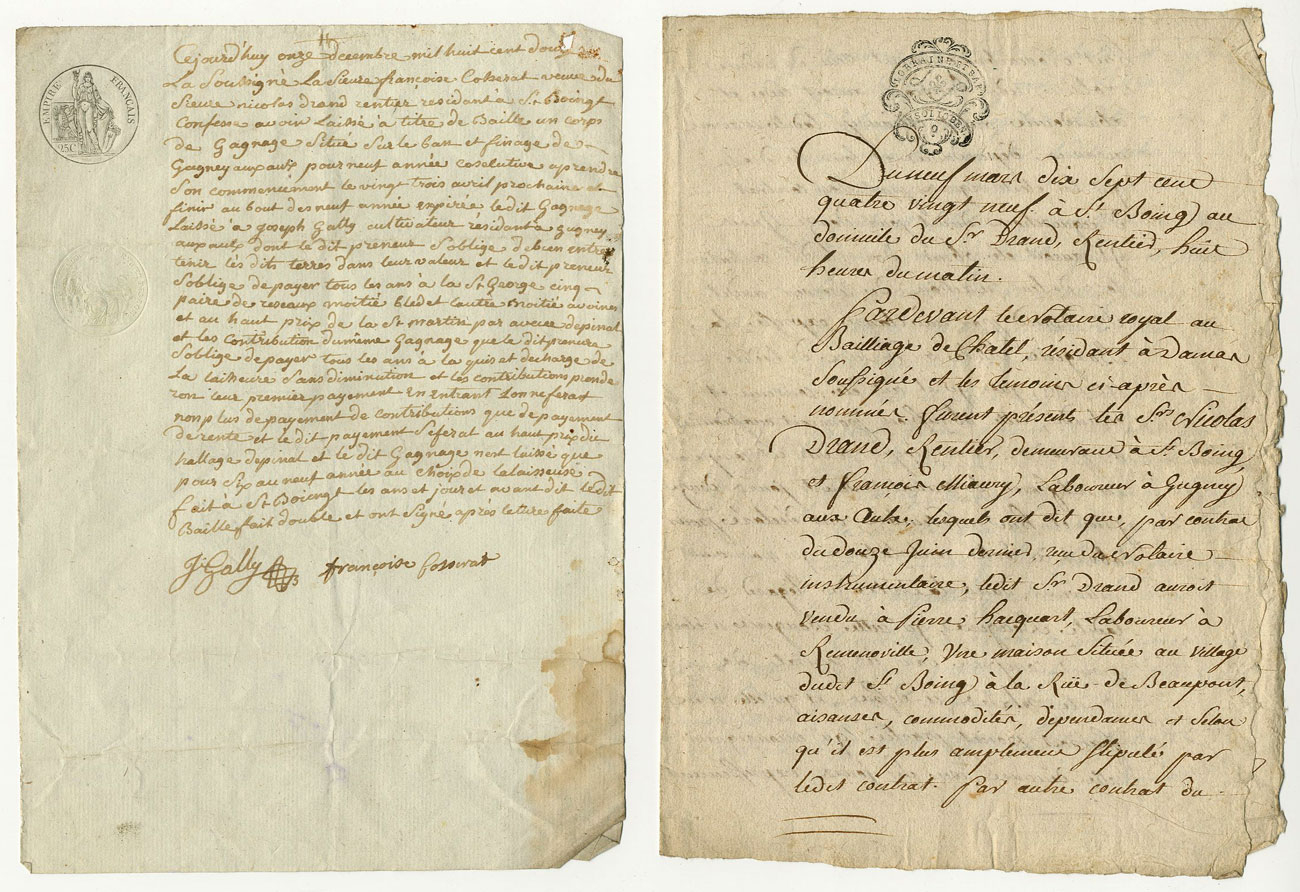 EMPIRE FRANÇAIS
25C
Cejourd'huy onze decembre mil huit cent douze
La Soussigné La Sieure françoise Cosserat veuve du
Sieure nicolas drand rentier residant à St Boingt
Confesse avoir Laissé à titre de Baille un corps
de Gagnage Situé Sur le ban et finage de
Gugney aux aulx pour neuf année coselutive aprendre
Son commencement le vingt trois avril prochaine et
finir au bout des neuf année expirée le dit Gagnage
Laissé à joseph Gally cultivateur résidant a gugney
aux aulx dont le dit preneur S'oblige de bien entre
tenir lés dits terres dans leur valeur et le dit preneur
S'oblige de payer tous les ans à la St George cinq
paire de reseaux moitié bled et l'autre moitié avoine
et au haut prix de la St martin par avence depinal
et les Contribution dumême Gagnage que le dit preneure
S'oblige de payer tous les ans à la quis et decharge de
La laisseure Sans diminution et lés contributions prende
ron leur premier payement En entrant Lonneferat
non plus de payement de contributions que de payement
de rente et le dit payementSeferat au haut prix du
hallage depinal et le dit Gagnage nest laissé que
pour Six au neuf année au Choix de la laisseuse
fait à St Boiengt les ans et jour et avant dit le dit
Baille fait double et ont Signé après leture faite
J Gally françoise Cosserat
LORRAINE ET BAR
Du neuf mars dix sept cent
quatre vingt neuf. à St Boing au
domicile du Sr Drand, Rentier, huit
heures du matin.
Pardevant le Notaire royal au
Bailliage de Chatel, résidant à Damas
Soussigné et les temoins ci-après
nommés furent présents lés Srs Nicolas
Drand, Rentier, demeurant à St Boing,
et françois Miaury, Laboureur à Gugney
aux Aulx, lesquels ont dit que, par contrat
du douze Juin dernier, reçu du Notaire
instrumentaire, ledit Sr Drand auroit
vendu à Pierre hacquart, Laboureur à
Remenoville, Une maison Située au village
dudit St Boing à la Rüe de Beaupont,
aisanses, commodités, dependames et Selon
qu'il est plus amplement Stipulé par
ledit contrat. Par autre contrat du